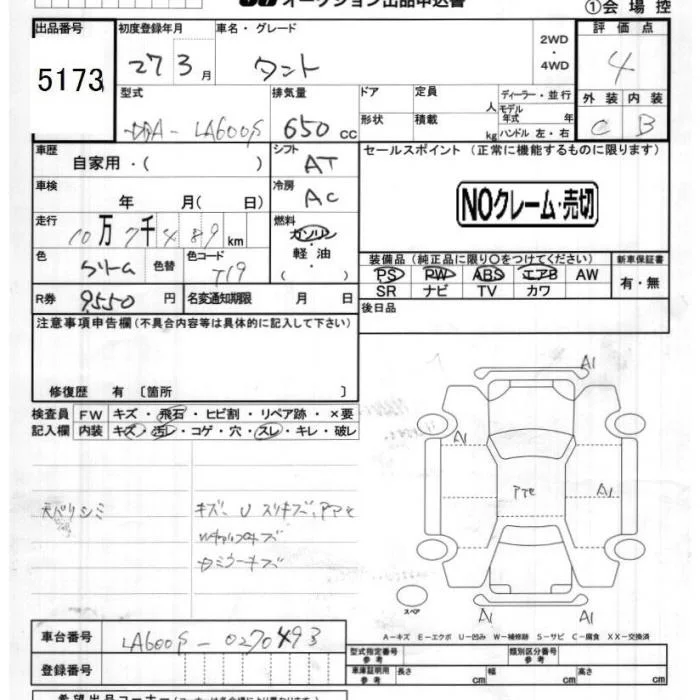 オークション出品申込書
①会場控
出品番号 初度登録年月 車名・グレード 2WD・4WD 評価点
5173 27 3月 タント 4
型式 排気量 ドア 定員 人 ディーラー・並行 外装 内装
DBA-LA600S 650cc 形状 積載 kg モデル年式 年 ハンドル 左・右 C B
車歴 自家用・( ) シフト AT セールスポイント (正常に機能するものに限ります)
車検 年 月( 日) 冷房 AC NOクレーム・売切
走行 10万7千489km 燃料 ガソリン 軽油 ( )
装備品 (純正品に限り〇をつけてください) 新車保証書
色 クリーム 色替 色コード T19 PS PW ABS エアB AW 有・無
R券 9,550円 名変通知期限 月 日 SR ナビ TV カワ
後日品
注意事項申告欄(不具合内容等は具体的に記入して下さい)
修復歴 有 〔箇所 〕
検査員 FW キズ・飛石・ヒビ割・リペア跡・×要
記入欄 内装 キズ・汚レ・コゲ・穴・スレ・キレ・破レ
A1
A1
A1
A1
A1
スペア
A-キズ E-エクボ U-凹み W-補修跡 S-サビ C-腐食 XX-交換済
車台番号 LA600S-0270493
型式指定番号 参考 類別区分番号 参考
登録番号 車庫証明用 参考 長さ cm 幅 cm 高さ cm
希望出品コーナー